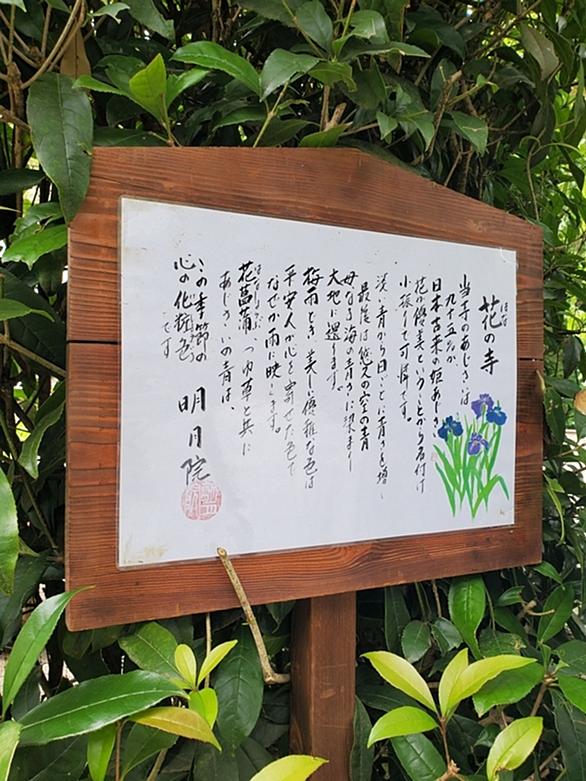 花の寺
はな
当寺のあじさいは
九十五%が
日本古来の姫あじさい
花が優美ということから名付け
小振りで可憐です。
淡い青から日ごとに青さを増し
最後は悠久の空の青
母なる海の青さに染まり
大地に還ります。
梅雨どき美しく優雅な色は
平安人が心を寄せた色で
なぜか雨に映えます。
花菖蒲 つゆ草と共に
はなしょうぶ
あじさいの青は、
この季節の
心の化粧色です
明月院